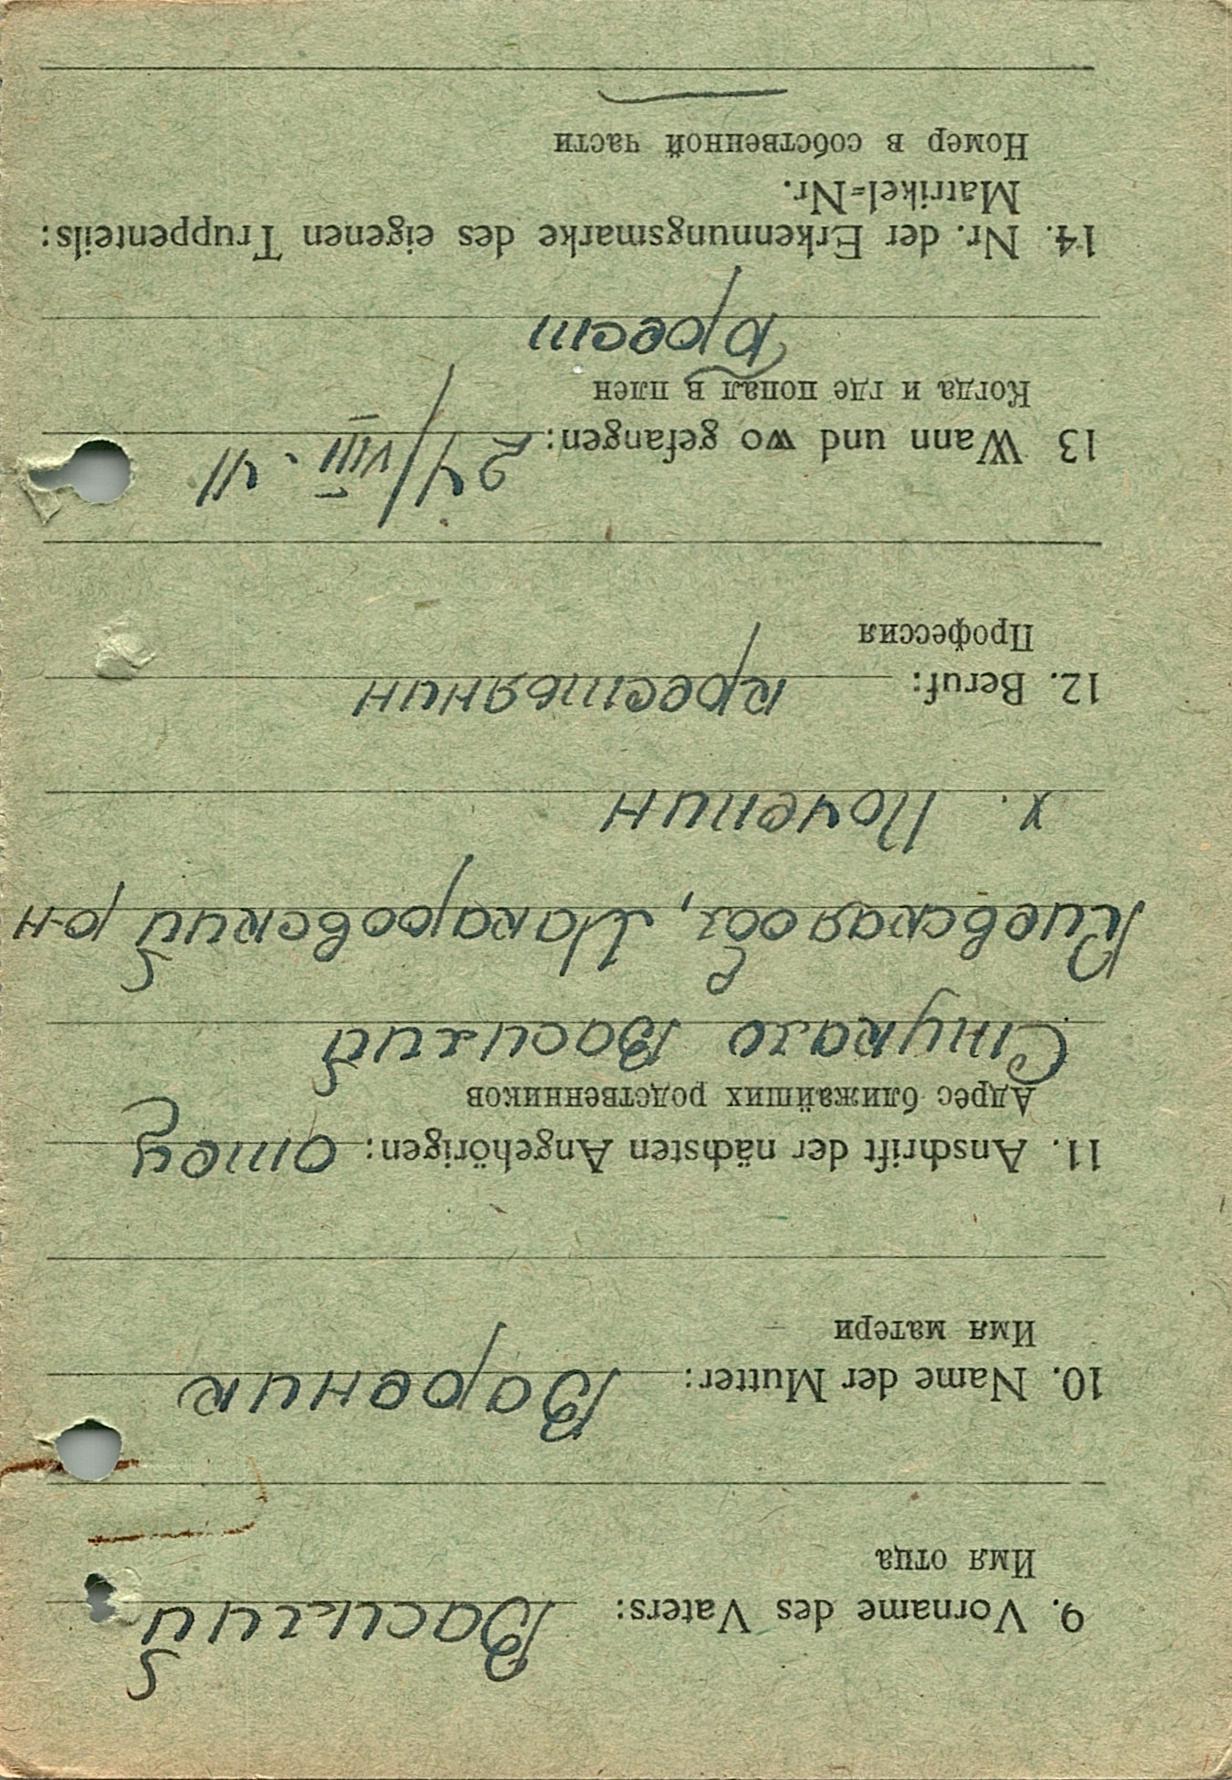 9. Vorname des Vaters: Василий
Имя отца
10. Name der Mutter: Вареник
Имя матери
11. Anschrift der nächsten Angehörigen: отец
Адрес ближайших родственников
Стукало Василий
Киевская обл, Макаровский р-н
х. Почепин
12. Beruf: крестьянин
Профессия
13 Wann und wo gefangen: 24/VIII. 41
Когда и где попал в плен
Брест
14. Nr. der Erkennungsmarke des eigenen Truppenteils:
Matrikel=Nr.
Номер в собственной части
—